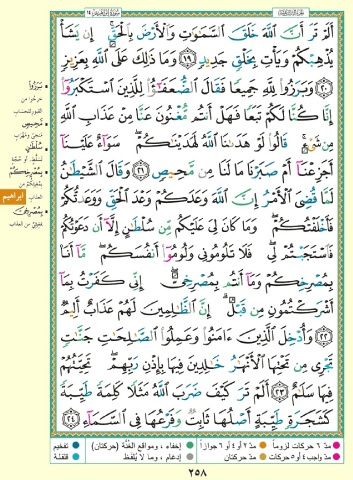 سورة إبراهيم ١٤
أَلَمْ تَرَ أَنَّ ٱللَّهَ خَلَقَ ٱلسَّمَٰوَٰتِ وَٱلْأَرْضَ بِٱلْحَقِّ ۚ إِن يَشَأْ
يُذْهِبْكُمْ وَيَأْتِ بِخَلْقٍ جَدِيدٍ ١٩ وَمَا ذَٰلِكَ عَلَى ٱللَّهِ بِعَزِيزٍ
٢٠ وَبَرَزُوا۟ لِلَّهِ جَمِيعًا فَقَالَ ٱلضُّعَفَٰٓؤُا۟ لِلَّذِينَ ٱسْتَكْبَرُوٓا۟
إِنَّا كُنَّا لَكُمْ تَبَعًا فَهَلْ أَنتُم مُّغْنُونَ عَنَّا مِنْ عَذَابِ ٱللَّهِ
مِن شَىْءٍ ۚ قَالُوا۟ لَوْ هَدَىٰنَا ٱللَّهُ لَهَدَيْنَٰكُمْ ۖ سَوَآءٌ عَلَيْنَآ
أَجَزِعْنَآ أَمْ صَبَرْنَا مَا لَنَا مِن مَّحِيصٍ ٢١ وَقَالَ ٱلشَّيْطَٰنُ
لَمَّا قُضِىَ ٱلْأَمْرُ إِنَّ ٱللَّهَ وَعَدَكُمْ وَعْدَ ٱلْحَقِّ وَوَعَدتُّكُمْ
فَأَخْلَفْتُكُمْ ۖ وَمَا كَانَ لِىَ عَلَيْكُم مِّن سُلْطَٰنٍ إِلَّآ أَن دَعَوْتُكُمْ
فَٱسْتَجَبْتُمْ لِى ۖ فَلَا تَلُومُونِى وَلُومُوٓا۟ أَنفُسَكُم ۖ مَّآ أَنَا۠
بِمُصْرِخِكُمْ وَمَآ أَنتُم بِمُصْرِخِىَّ ۖ إِنِّى كَفَرْتُ بِمَآ
أَشْرَكْتُمُونِ مِن قَبْلُ ۗ إِنَّ ٱلظَّٰلِمِينَ لَهُمْ عَذَابٌ أَلِيمٌ
٢٢ وَأُدْخِلَ ٱلَّذِينَ ءَامَنُوا۟ وَعَمِلُوا۟ ٱلصَّٰلِحَٰتِ جَنَّٰتٍ
تَجْرِى مِن تَحْتِهَا ٱلْأَنْهَٰرُ خَٰلِدِينَ فِيهَا بِإِذْنِ رَبِّهِمْ ۖ تَحِيَّتُهُمْ
فِيهَا سَلَٰمٌ ٢٣ أَلَمْ تَرَ كَيْفَ ضَرَبَ ٱللَّهُ مَثَلًا كَلِمَةً طَيِّبَةً
كَشَجَرَةٍ طَيِّبَةٍ أَصْلُهَا ثَابِتٌ وَفَرْعُهَا فِى ٱلسَّمَآءِ ٢٤
بَرَزُوا
مَحِيصٍ
سُلْطَانٍ
بِمُصْرِخِكُمْ
إبراهيم
بِمُصْرِخِيَّ
مدّ ٦ حركات لزوماً مدّ ٢ أو ٤ أو ٦ جوازاً إخفاء، ومواقع الغُنَّة (حركتان) تفخيم
مدّ واجب ٤ أو ٥ حركات مدّ حركتان إدغام، وما لا يُلفظ قلقلة
٢٥٨